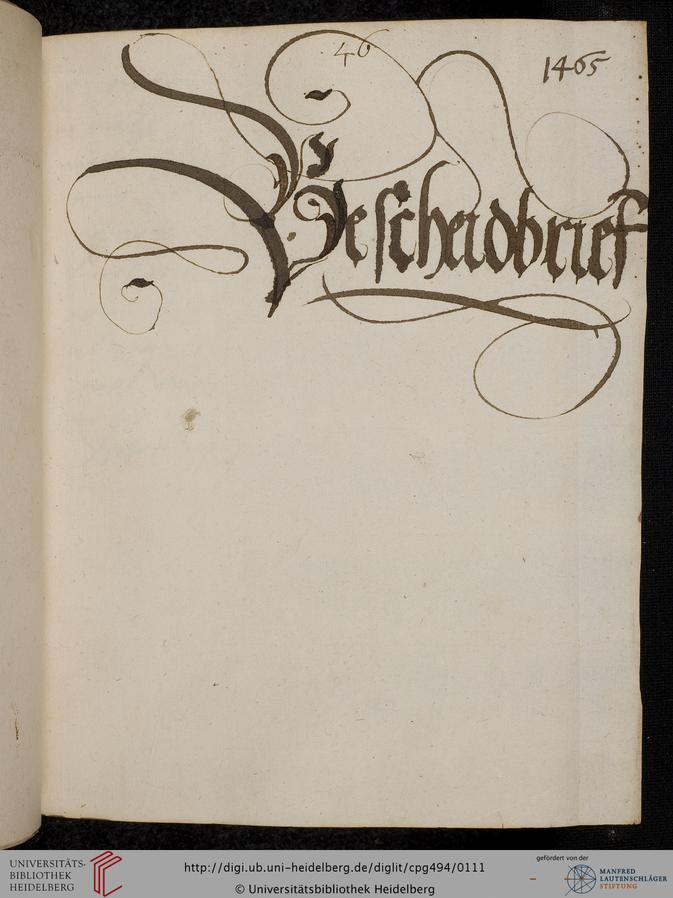 46
1465
Bescheidbrief
UNIVERSITÄTS-
BIBLIOTHEK
HEIDELBERG
http://digi.ub.uni-heidelberg.de/diglit/cpg494/0111
© Universitätsbibliothek Heidelberg
gefördert von der
MANFRED
LAUTENSCHLÄGER
STIFTUNG